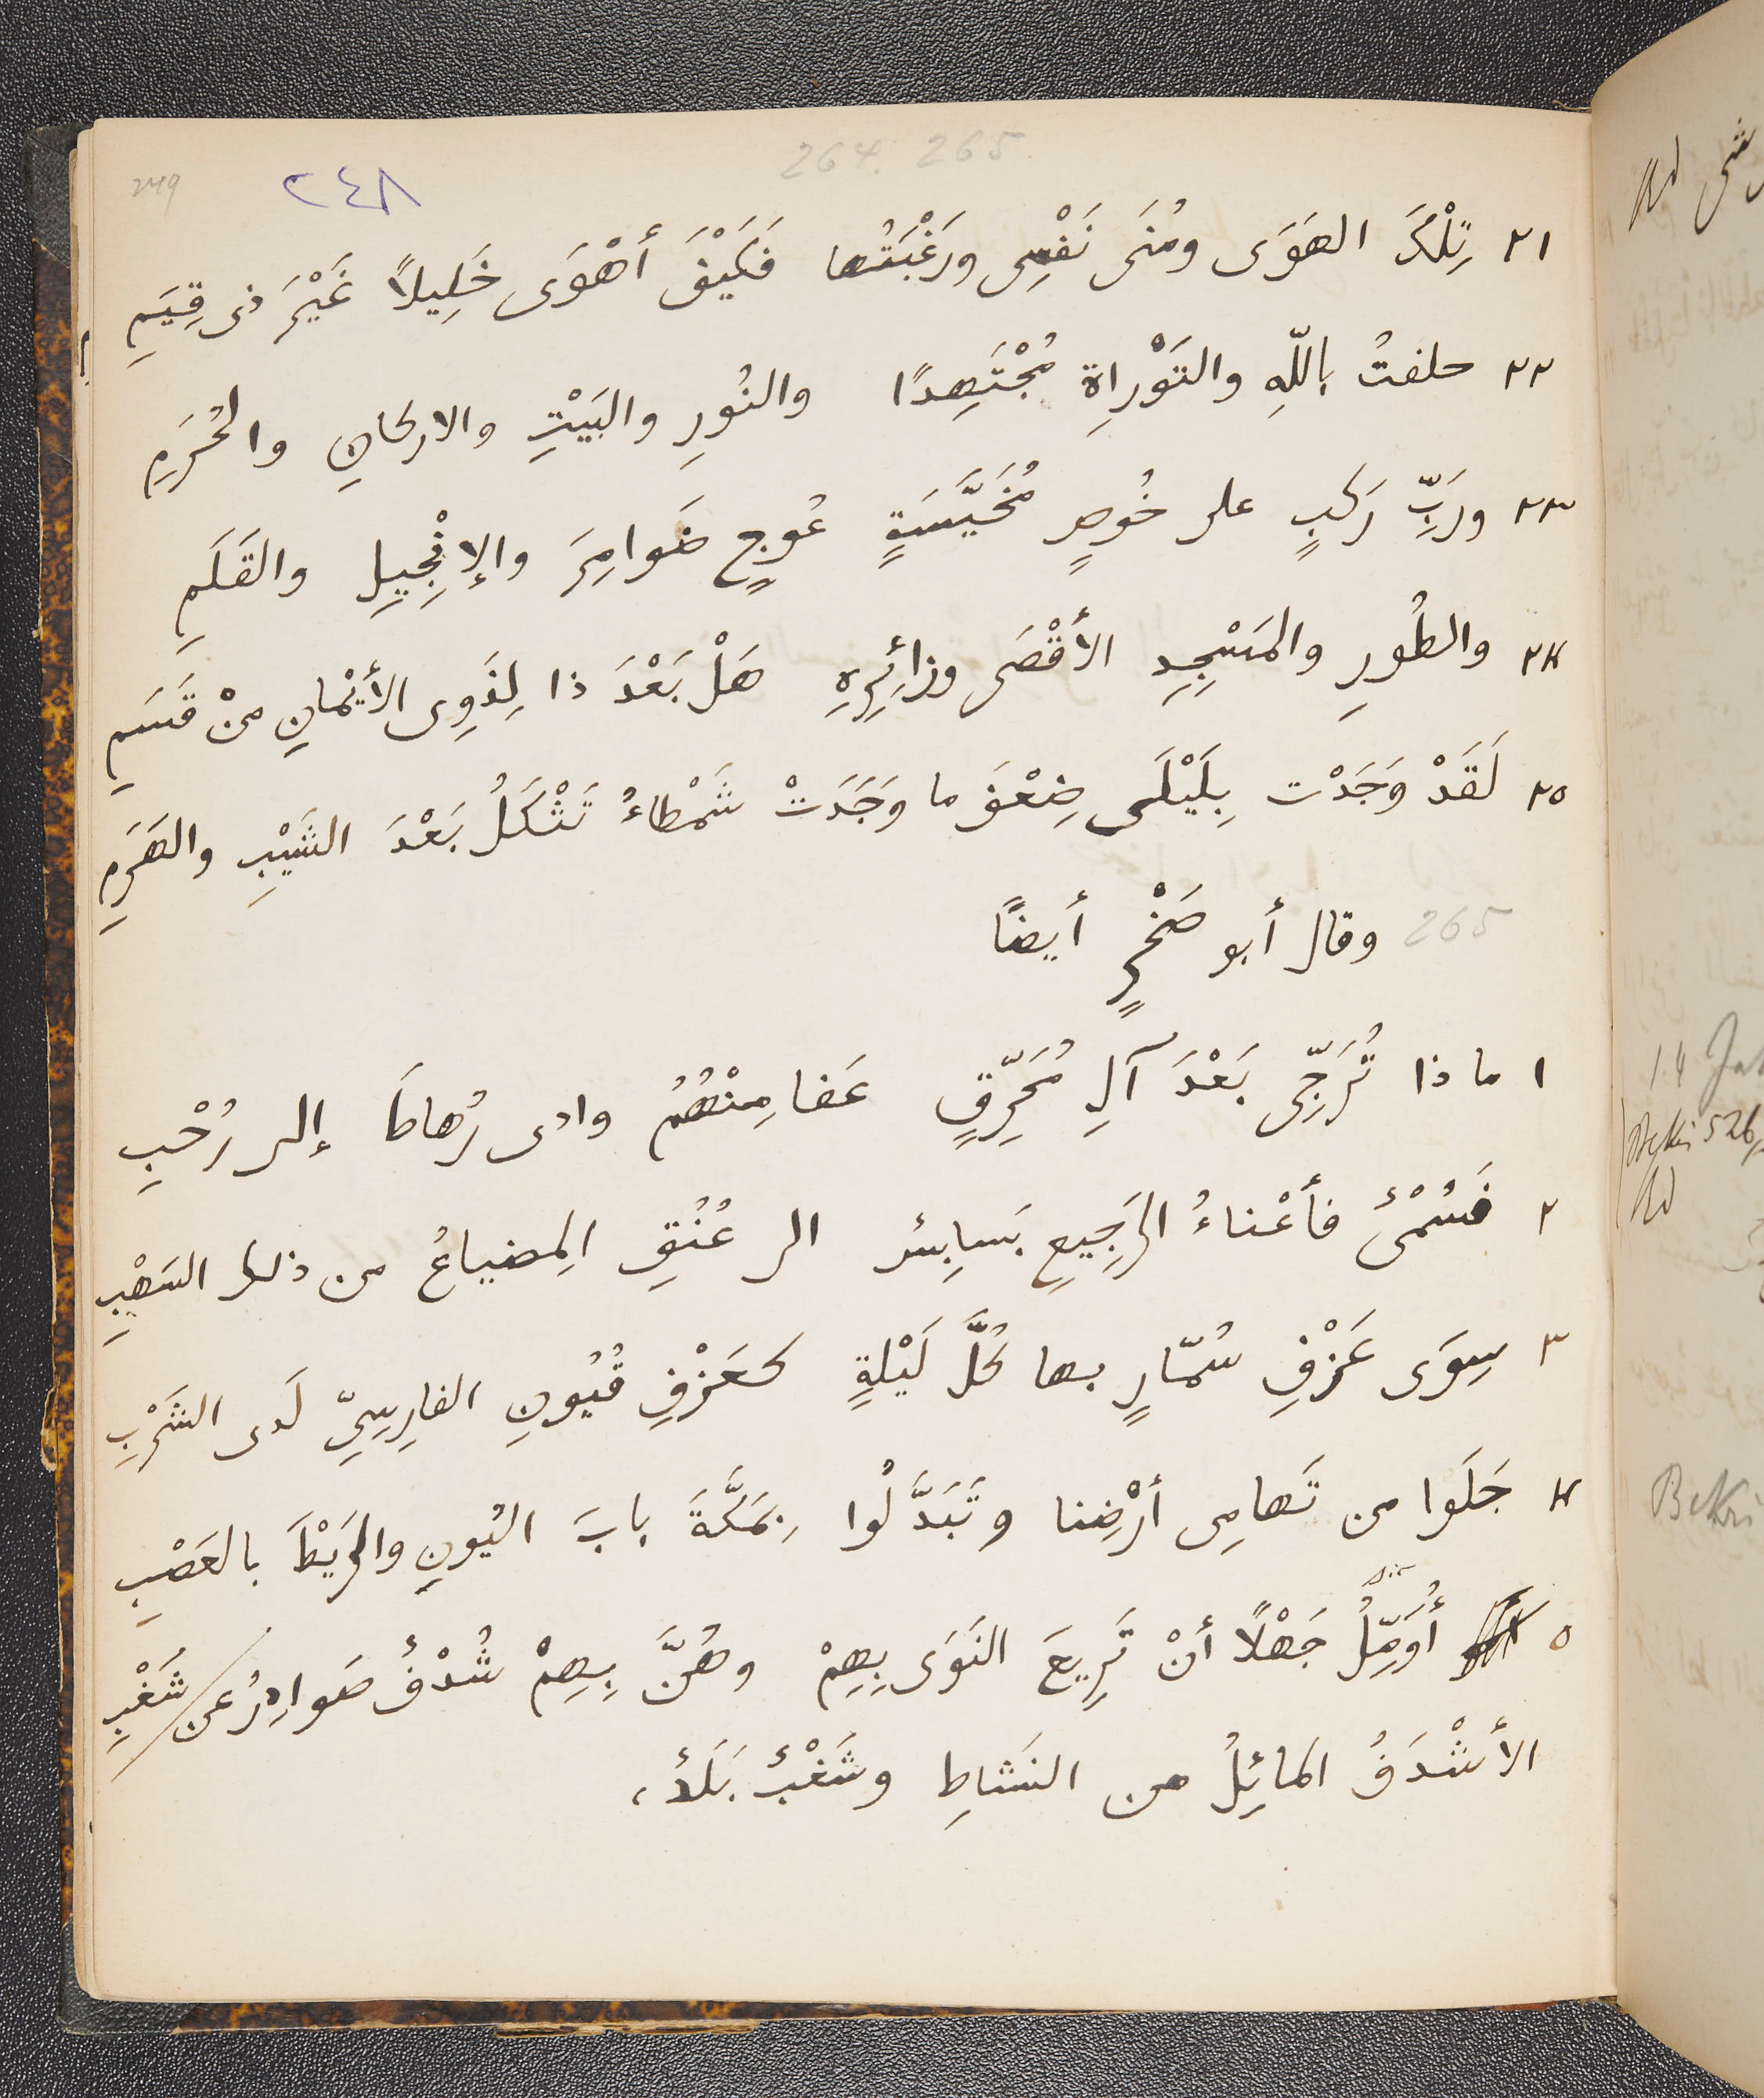 264. 265
249
٢٤٨
٢١ تِلْكَ الهَوَى ومُنَى نَفْسِى ورَغْبَتُها فَكَيْفَ أَهْوَى خَلِيلًا غَيْرَ ذى قِيَمِ
٢٢ حلفتُ بِاللّهِ والتَوْراةِ مُجْتَهِدًا والنُورِ والبَيْتِ والاركانِ والحُرَمِ
٢٣ ورَبِّ رَكبٍ على خُوصٍ مُخَيَّسَةٍ عُوجٍ ضَوامِرَ والإنْجِيلِ والقَلَمِ
٢٤ والطُورِ والمَسْجِدِ الأَقْصَى وزائِرِهِ هَلْ بَعْدَ ذا لِذَوِى الأَيْمانِ مِنْ قَسَمِ
٢٥ لَقَدْ وَجَدْت بِلَيْلَى ضِعْفَ ما وَجَدَتْ شَمْطاءُ تَثْكَلُ بَعْدَ الشَيْبِ والهَرَمِ
265 وقال أبو صَخْرٍ أيضًا
١ ما ذا تُرَجِّى بَعْدَ آلِ مُحَرِّقٍ عَفا مِنْهُمُ وادى رُهاطَ إلى رُحْبِ
٢ فَسُمْىٌ فأَعْناءُ الرَجِيعِ بَسابِسٌ الى عُنُقِ المِضياعُ من ذلك السَهْبِ
٣ سِوَى عَزْفِ سُمّارٍ بها كُلَّ لَيْلةٍ كعَزْفِ قُيُونِ الفارِسِيِّ لَدى الشَرْبِ
٤ جَلَوا من تَهامِى أرْضِنا وتَبَدَّلُوا بِمَكَّةَ بابَ اليُونِ والرَيْطَ بالعَصْبِ
٥ أُوَمِّلُ جَهْلًا أنْ تَرِيعَ النَوَى بِهِمْ وهُنَّ بِهِمْ شُدْفُ صَوادِرُ عن شَغْبِ
الأَشْدَفُ المائِلُ من النَشاطِ وشَغْبٌ بَلَدٌ،
14
Bekri 526
Bekri